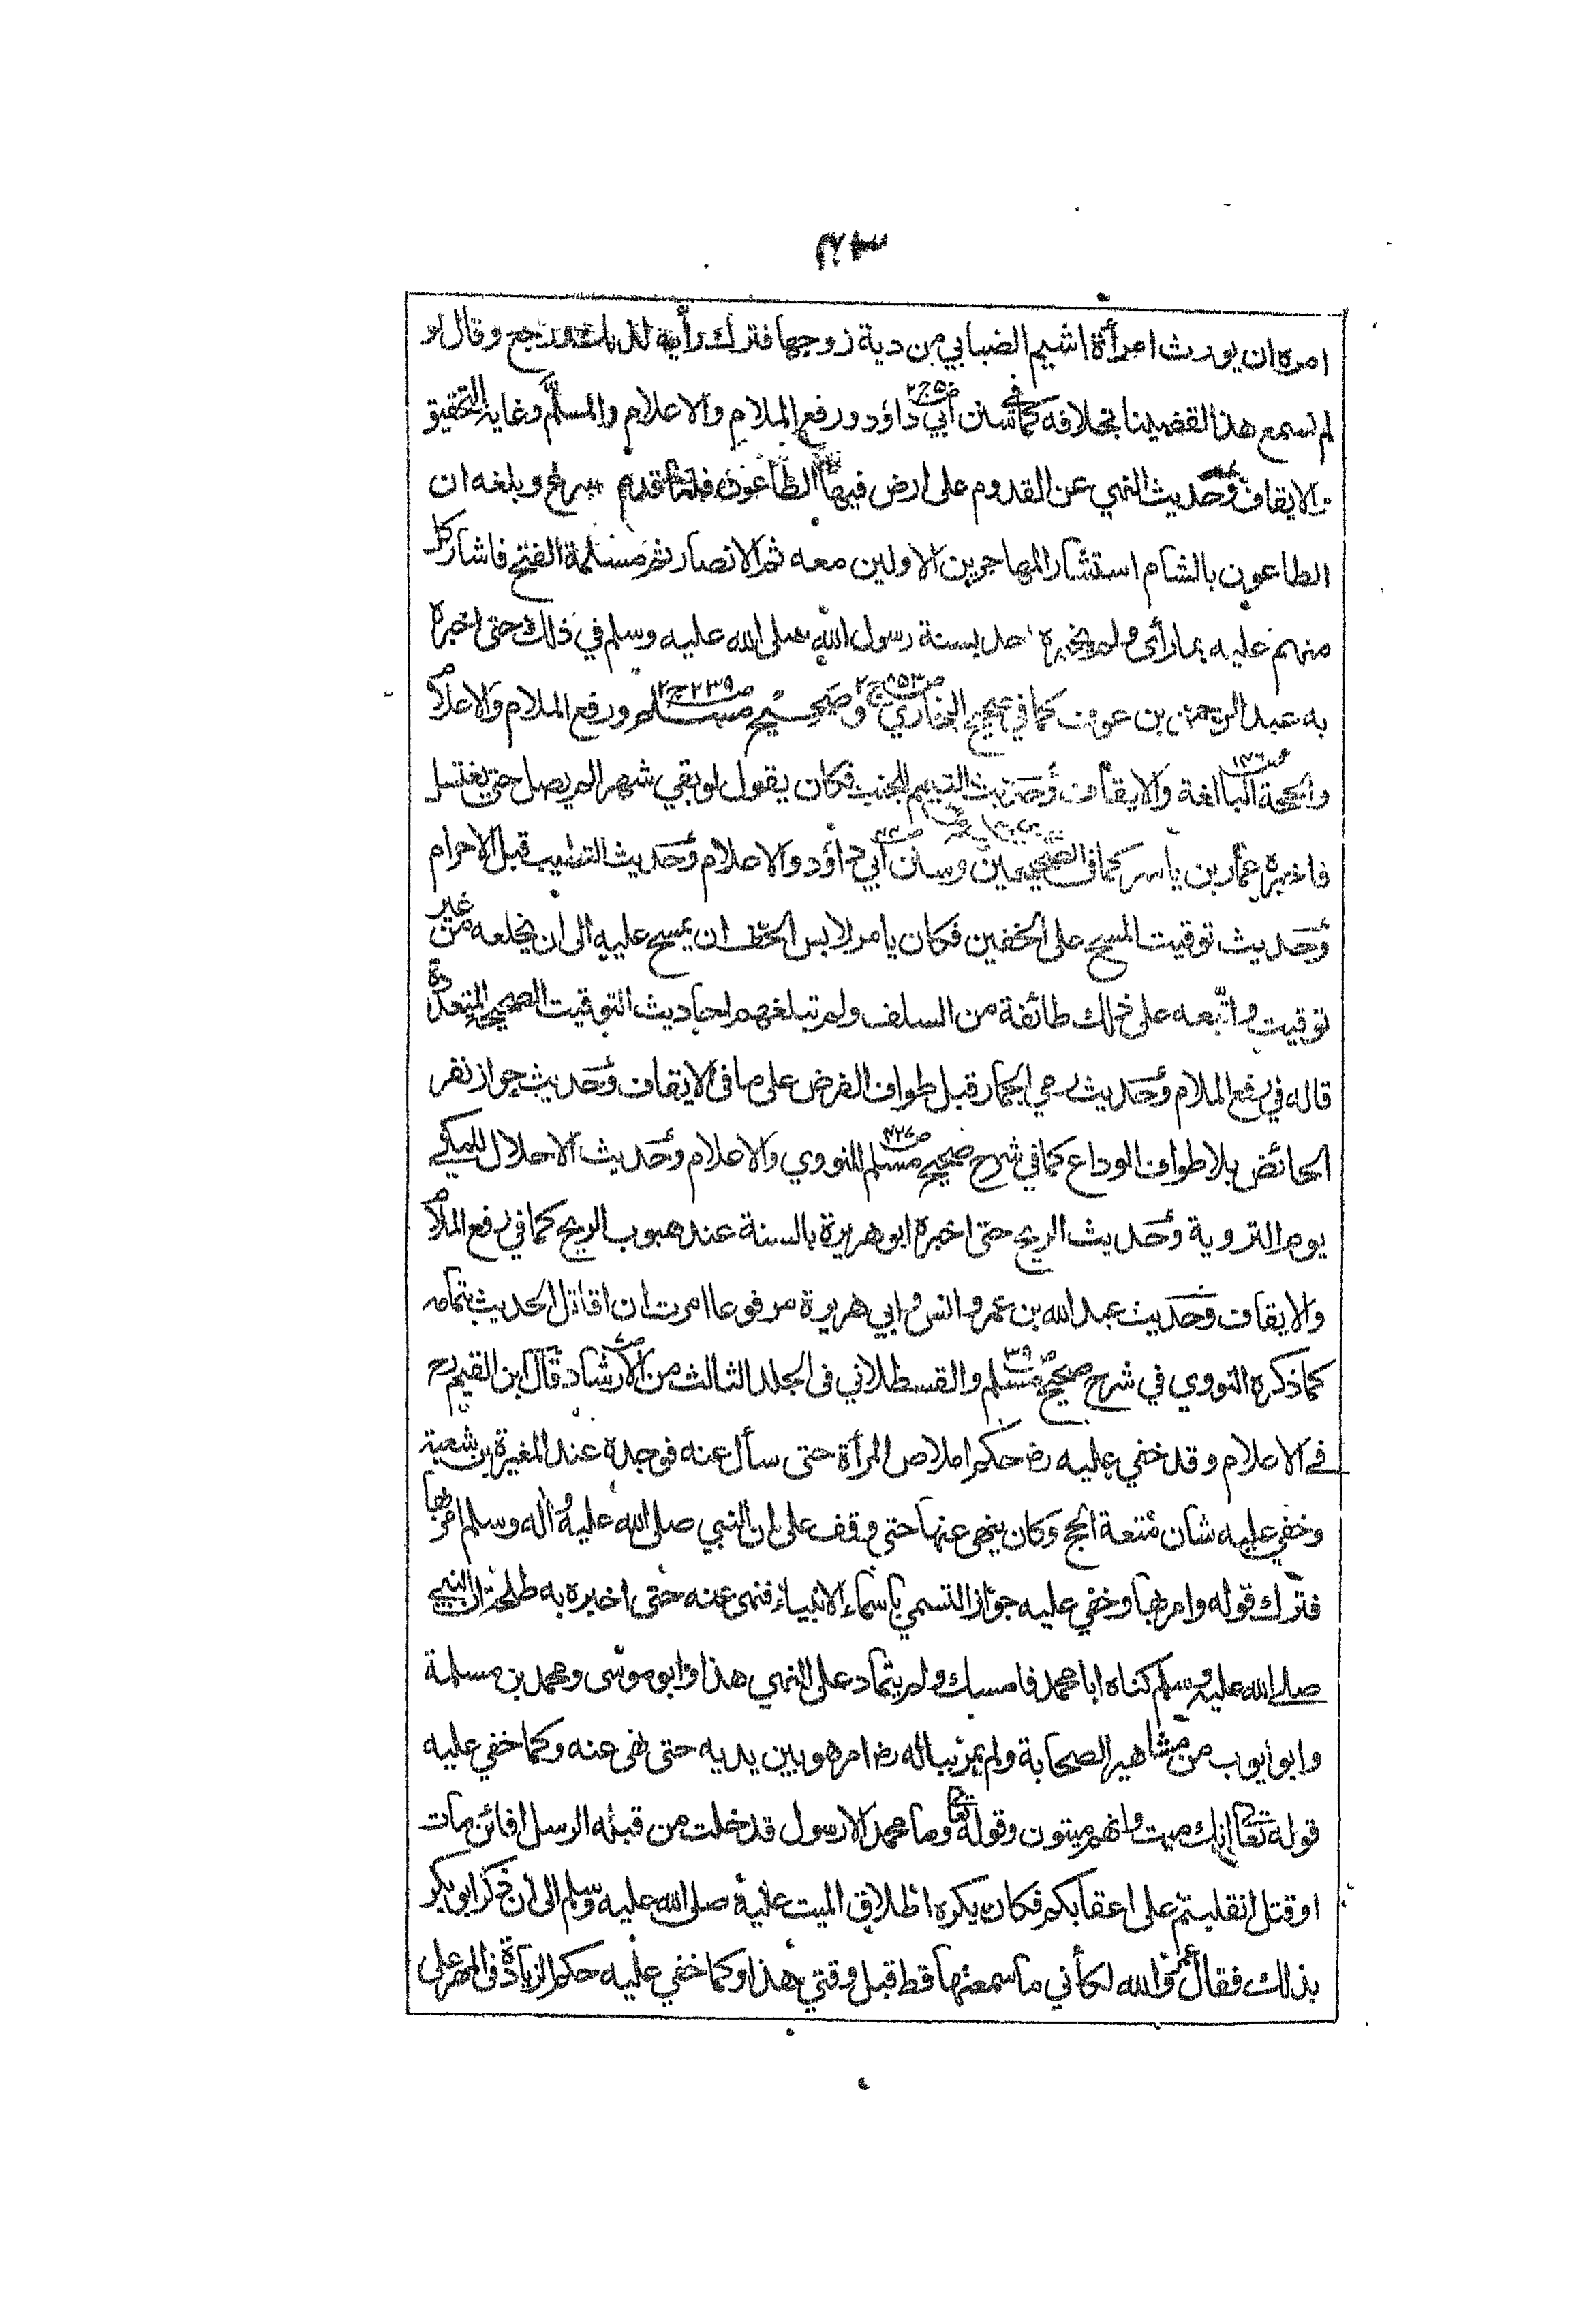 امره ان يورث امرأة اشيم الضبابي من دية زوجها فترك رأيه لذلك ورجع وقال لو
لم نسمع هذا لقضينا بخلافه كما في سنن أبي داؤد ورفع الملام والاعلام والمسلّم وغاية التحقيق
والايقاف وحديث النهي عن القدوم على ارض فيها الطاعون فلما قدم سرغ وبلغه ان
الطاعون بالشام استشار المهاجرين الاولين معه ثم الانصار ثم مسلمة الفتح فاشار كل
منهم عليه بما رأى ولم يخبره احد بسنة رسول الله صلى الله عليه وسلم في ذلك حتى اخبره
به عبد الرحمن بن عوف كما في صحيح البخاري وصحيح مسلم ورفع الملام والاعلام
والحجة البالغة والايقاف وحديث التيمم للجنب فكان يقول لو بقي شهرا لم يصل حتى يغتسل
فاخبره عمار بن ياسر كما في الصحيحين وسنن أبي داؤد والاعلام وحديث التطيب قبل الاحرام
وحديث توقيت المسح على الخفين فكان يامر لابس الخف ان يمسح عليه الى ان يخلعه من غير
توقيت واتبعه على ذلك طائفة من السلف ولم تبلغهم احاديث التوقيت الصحيحة المتعددة
قاله في رفع الملام وحديث رمي الجمار قبل طواف الفرض على ما في الايقاف وحديث جواز نفر
الحائض بلا طواف الوداع كما في شرح صحيح مسلم للنووي والاعلام وحديث الاحلال للمكي
يوم التروية وحديث الريح حتى اخبره ابو هريرة بالسنة عند هبوب الريح كما في رفع الملام
والايقاف وحديث عبد الله بن عمر وانس وابي هريرة مرفوعا امرت ان اقاتل الحديث بتمامه
كما ذكره النووي في شرح صحيح مسلم والقسطلاني في الجلد الثالث من الارشاد قال ابن القيم رح
في الاعلام وقد خفي عليه رض حكم املاص المرأة حتى سأل عنه فوجده عند المغيرة بن شعبة
وخفي عليه شان متعة الحج وكان ينهى عنها حتى وقف على ان النبي صلى الله عليه وآله وسلم امر بها
فترك قوله وامر بها وخفي عليه جواز التسمي باسماء الانبياء فنهى عنه حتى اخبره به طلحة ان النبي
صلى الله عليه وسلم كناه ابا محمد فامسك ولم يتماد على النهي هذا وابو موسى ومحمد بن مسلمة
وابو ايوب من مشاهير الصحابة ولم يمر بباله رض امر هو بين يديه حتى نهى عنه وكما خفي عليه
قوله تعا انك ميت وانهم ميتون وقوله تعا وما محمد الا رسول قد خلت من قبله الرسل افائن مات
او قتل انقلبتم على اعقابكم فكان يكره اطلاق الميت عليه صلى الله عليه وسلم الى ان ذكر ابو بكر
بذلك فقال عمر والله لكأني ما سمعتها قط قبل وقتي هذا وكما خفي عليه حكم الزيادة في المهر على